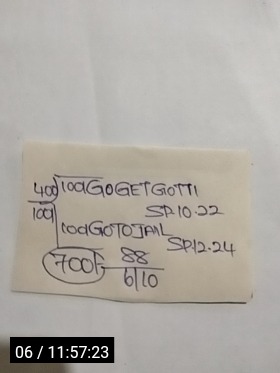 400 100GOGETGOTTI
100 SP.10.22
100GOTOJAIL
SP.12.24
700/- 88
6/10
06 / 11:57:23